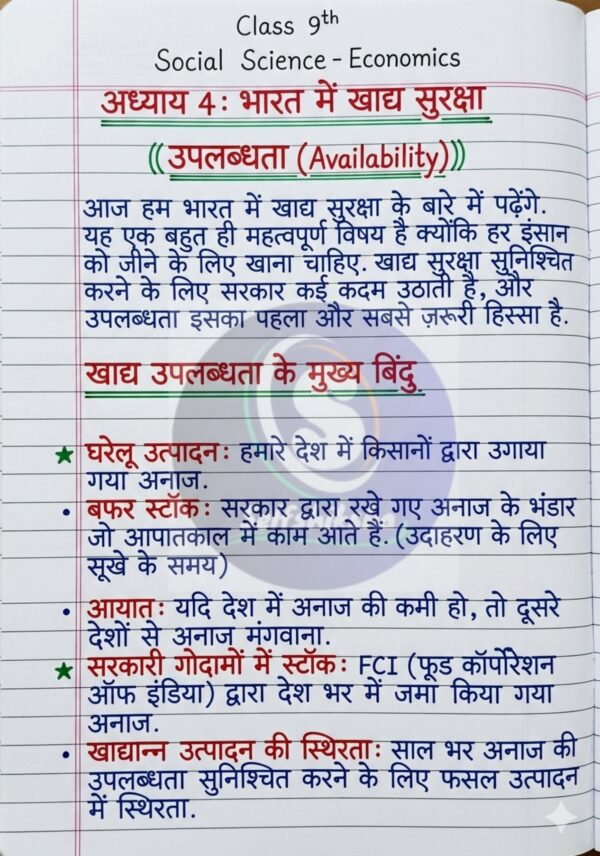 Class 9th
Social Science - Economics
अध्याय 4: भारत में खाद्य सुरक्षा
((उपलब्धता (Availability)))
आज हम भारत में खाद्य सुरक्षा के बारे में पढ़ेंगे.
यह एक बहुत ही महत्वपूर्ण विषय है क्योंकि हर इंसान
को जीने के लिए खाना चाहिए. खाद्य सुरक्षा सुनिश्चित
करने के लिए सरकार कई कदम उठाती है, और
उपलब्धता इसका पहला और सबसे ज़रूरी हिस्सा है.
खाद्य उपलब्धता के मुख्य बिंदु
★ घरेलू उत्पादन: हमारे देश में किसानों द्वारा उगाया
गया अनाज.
• बफर स्टॉक: सरकार द्वारा रखे गए अनाज के भंडार
जो आपातकाल में काम आते हैं. (उदाहरण के लिए
सूखे के समय)
• आयात: यदि देश में अनाज की कमी हो, तो दूसरे
देशों से अनाज मंगवाना.
★ सरकारी गोदामों में स्टॉक: FCI (फूड कॉर्पोरेशन
ऑफ इंडिया) द्वारा देश भर में जमा किया गया
अनाज.
• खाद्यान्न उत्पादन की स्थिरता: साल भर अनाज की
उपलब्धता सुनिश्चित करने के लिए फसल उत्पादन
में स्थिरता.